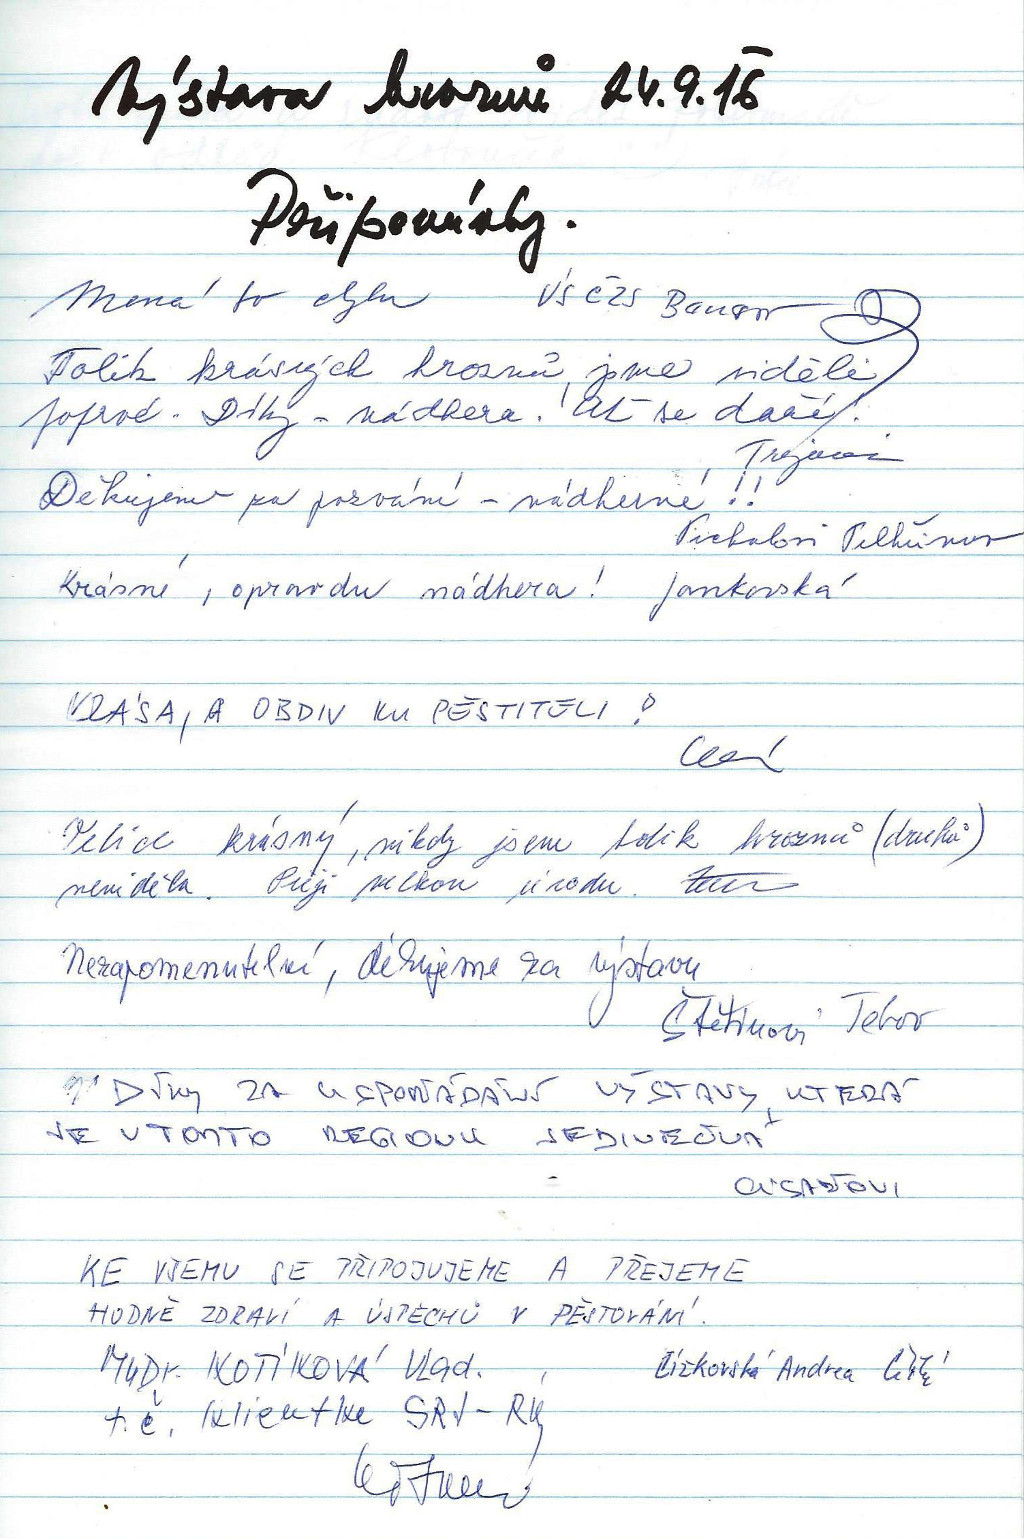 Výstava hroznů 24.9.16
Připomínky.
Nemá to chybu VS ČZS
Tolik krásných hroznů jsme viděli
poprvé. Díky - nádhera! Ať se daří!
Děkujeme za pozvání - nádherné!!
Krásné, opravdu nádhera! Jankovská
KRÁSA, A OBDIV KU PĚSTITELI!
Velice krásný, nikdy jsem tolik hroznů (druhů)
neviděla. Přeji velkou úrodu.
Nezapomenutelné, děkujeme za výstavu
Díky ZA USPOŘÁDÁNÍ VÝSTAVY, KTERÁ
JE V TOMTO REGIONU JEDINEČNÁ
KE VŠEMU SE PŘIPOJUJEME A PŘEJEME
HODNĚ ZDRAVÍ A ÚSPĚCHŮ V PĚSTOVÁNÍ.
MuDr. KOTÍKOVÁ Vlad. Čížkovská Andrea
t.č. klientke